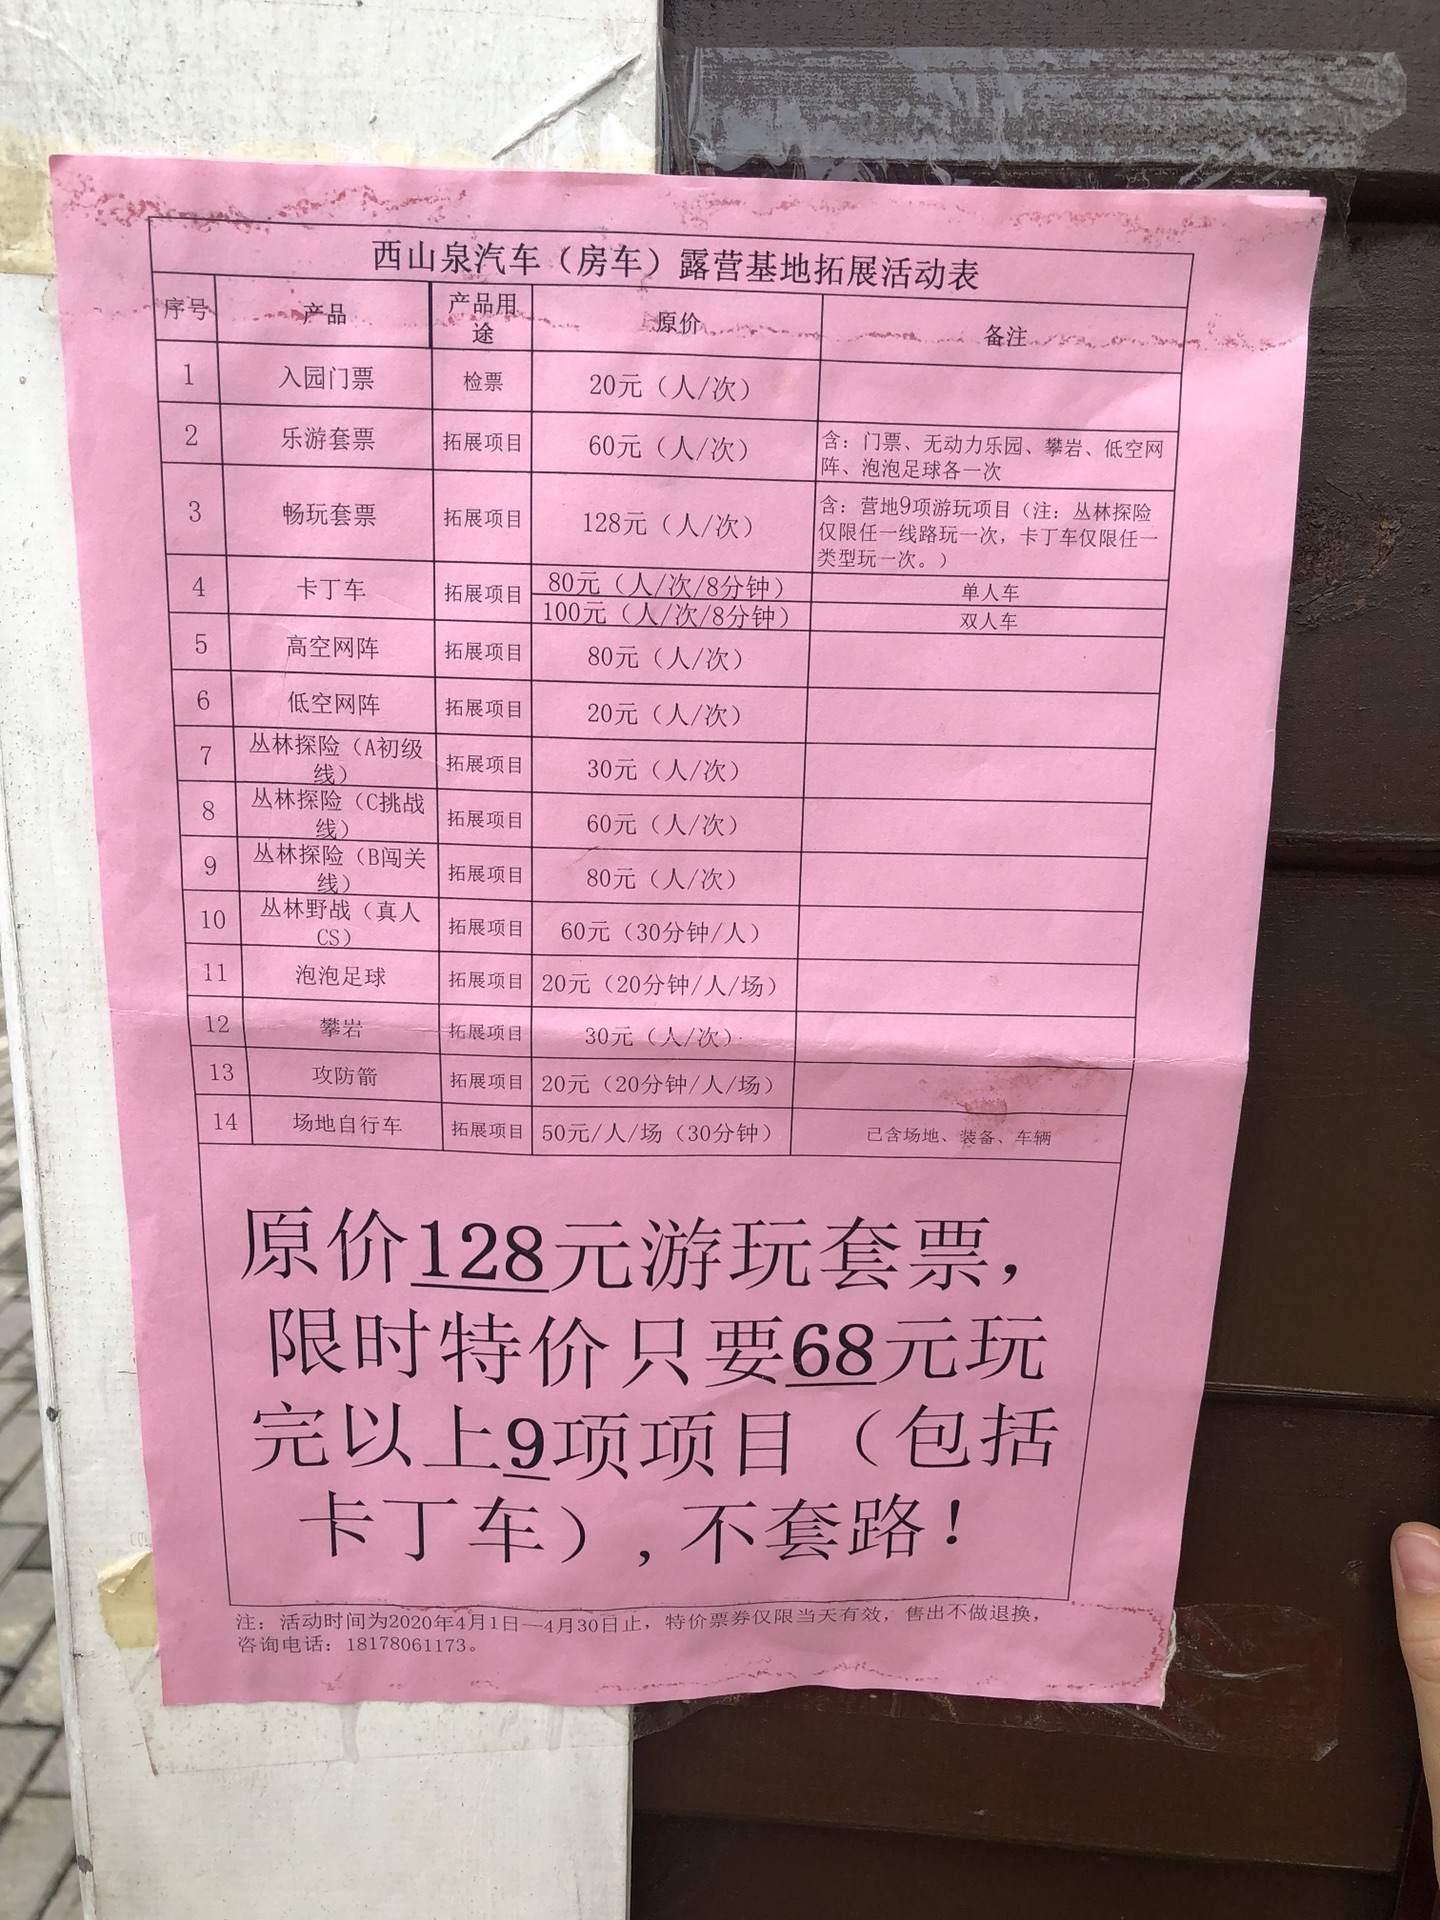 西山泉汽车（房车）露营基地拓展活动表
序号 产品 产品用途 原价 备注
1 入园门票 检票 20元（人/次）
2 乐游套票 拓展项目 60元（人/次） 含：门票、无动力乐园、攀岩、低空网
阵、泡泡足球各一次
3 畅玩套票 拓展项目 128元（人/次） 含：营地9项游玩项目（注：丛林探险
仅限任一线路玩一次，卡丁车仅限任一
类型玩一次。）
4 卡丁车 拓展项目 80元（人/次/8分钟） 单人车
100元（人/次/8分钟） 双人车
5 高空网阵 拓展项目 80元（人/次）
6 低空网阵 拓展项目 20元（人/次）
7 丛林探险（A初级线） 拓展项目 30元（人/次）
8 丛林探险（C挑战线） 拓展项目 60元（人/次）
9 丛林探险（B闯关线） 拓展项目 80元（人/次）
10 丛林野战（真人CS） 拓展项目 60元（30分钟/人）
11 泡泡足球 拓展项目 20元（20分钟/人/场）
12 攀岩 拓展项目 30元（人/次）
13 攻防箭 拓展项目 20元（20分钟/人/场）
14 场地自行车 拓展项目 50元/人/场（30分钟） 已含场地、装备、车辆
原价128元游玩套票，
限时特价只要68元玩
完以上9项项目（包括
卡丁车）,不套路！
注：活动时间为2020年4月1日—4月30日止，特价票券仅限当天有效，售出不做退换，
咨询电话：18178061173。